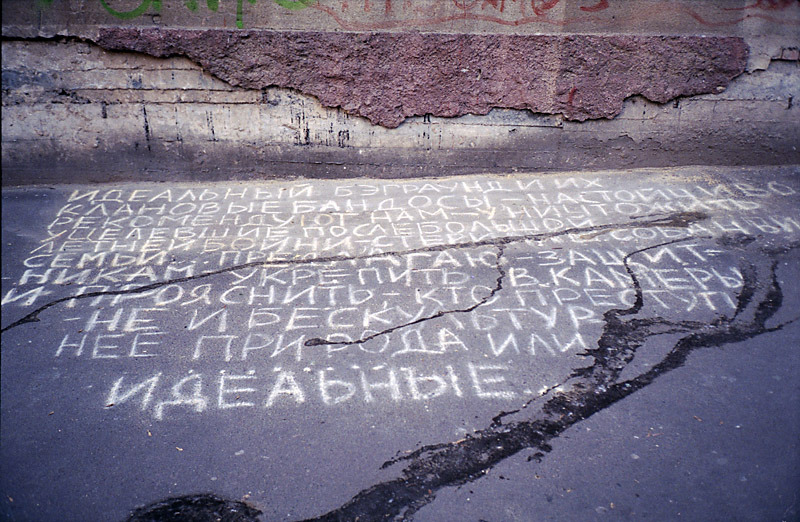 ИДЕАЛЬНЫЙ БЭГРАУНД И ИХ
КЛАНОВЫЕ БАНДОСЫ - НАСТОЙЧИВО
РЕКОМЕНДУЮТ НАМ - УНИЧТОЖИТЬ
УЦЕЛЕВШИЕ ПОСЛЕ
ЛЕТНЕЙ БОЙНИ -
СЕМЬИ. ПРЕДЛАГАЮ - ЗАЩИТ-
НИКАМ - УКРЕПИТЬ В.КАМЕРЫ
И ПРОЯСНИТЬ - КТО ПРЕСТУП
- НЕ И БЕСКУЛЬТУР
НЕЕ ПРИРОДА ИЛИ
ИДЕАЛЬНЫЕ..